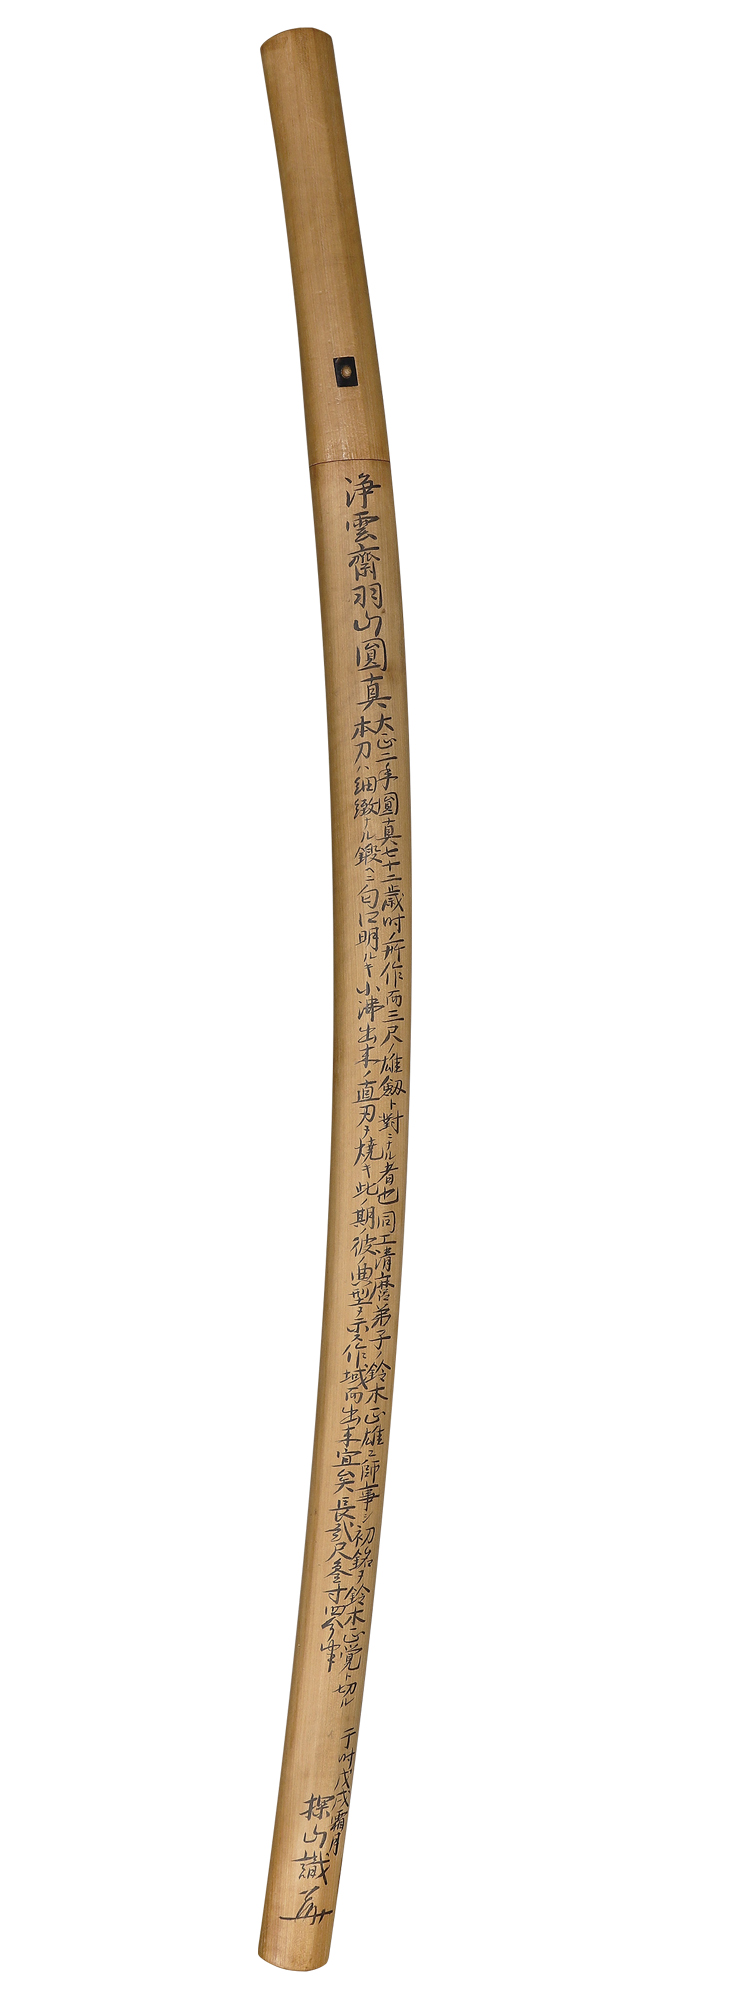 浄雲齋羽山圓真
大正二年圓真七十二歳時ノ所作而三尺ノ雄劔ト對ニナル者也同工清麿弟子ノ鈴木正雄ニ師事シ初銘ヲ鈴木正覚ト切ル
本刀ハ細緻ナル鍛ヘニ匂口明ルキ小沸出来ノ直刃ヲ焼キ此ノ期ノ彼ノ典型ヲ示ス作域而出来宜矣長弐尺参寸四分半
于時戊戌霜月
探山識